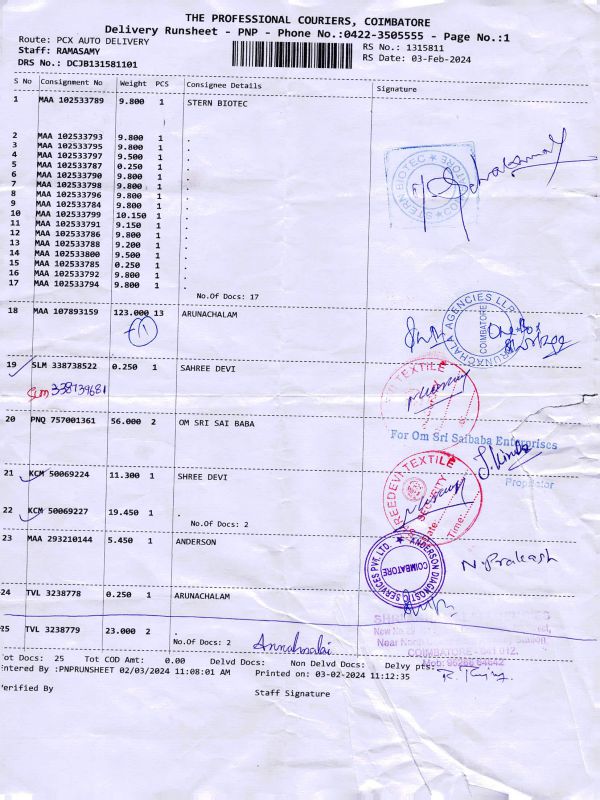 THE PROFESSIONAL COURIERS, COIMBATORE
Delivery Runsheet - PNP - Phone No.:0422-3505555 - Page No.:1
Route: PCX AUTO DELIVERY
RS No.: 1315811
Staff: RAMASAMY
RS Date: 03-Feb-2024
DRS No.: DCJB131581101
S No Consignment No Weight PCS Consignee Details Signature
1 MAA 102533789 9.800 1 STERN BIOTEC
2 MAA 102533793 9.800 1 .
3 MAA 102533795 9.800 1 .
4 MAA 102533797 9.500 1 .
5 MAA 102533787 0.250 1 .
6 MAA 102533790 9.800 1 .
7 MAA 102533798 9.800 1 .
8 MAA 102533796 9.800 1 .
9 MAA 102533784 9.800 1 .
10 MAA 102533799 10.150 1 .
11 MAA 102533791 9.150 1 .
12 MAA 102533786 9.800 1 .
13 MAA 102533788 9.200 1 .
14 MAA 102533800 9.500 1 .
15 MAA 102533785 0.250 1 .
16 MAA 102533792 9.800 1 .
17 MAA 102533794 9.800 1 .
No.Of Docs: 17
STERN BIOTEC
18 MAA 107893159 123.000 13 ARUNACHALAM
ARUNACHALA AGENCIES LLP
COIMBATORE
19 SLM 338738522 0.250 1 SAHREE DEVI
SLM 338739681
TEXTILE
20 PNQ 757001361 56.000 2 OM SRI SAI BABA
For Om Sri Saibaba Enterprises
Proprietor
21 KCM 50069224 11.300 1 SHREE DEVI
REEDEVI TEXTILE
SECURITY
Date....
Time....
22 KCM 50069227 19.450 1 .
No.Of Docs: 2
23 MAA 293210144 5.450 1 ANDERSON
ANDERSON DIAGNOSTIC SERVICES PVT. LTD.
COIMBATORE
N. Prakash
24 TVL 3238778 0.250 1 ARUNACHALAM
25 TVL 3238779 23.000 2 .
No.Of Docs: 2
COIMBATORE - 641 012.
Tot Docs: 25 Tot COD Amt: 0.00 Delvd Docs: Non Delvd Docs: Delvy pts:
Entered By :PNPRUNSHEET 02/03/2024 11:08:01 AM Printed on: 03-02-2024 11:12:35
Verified By
Staff Signature